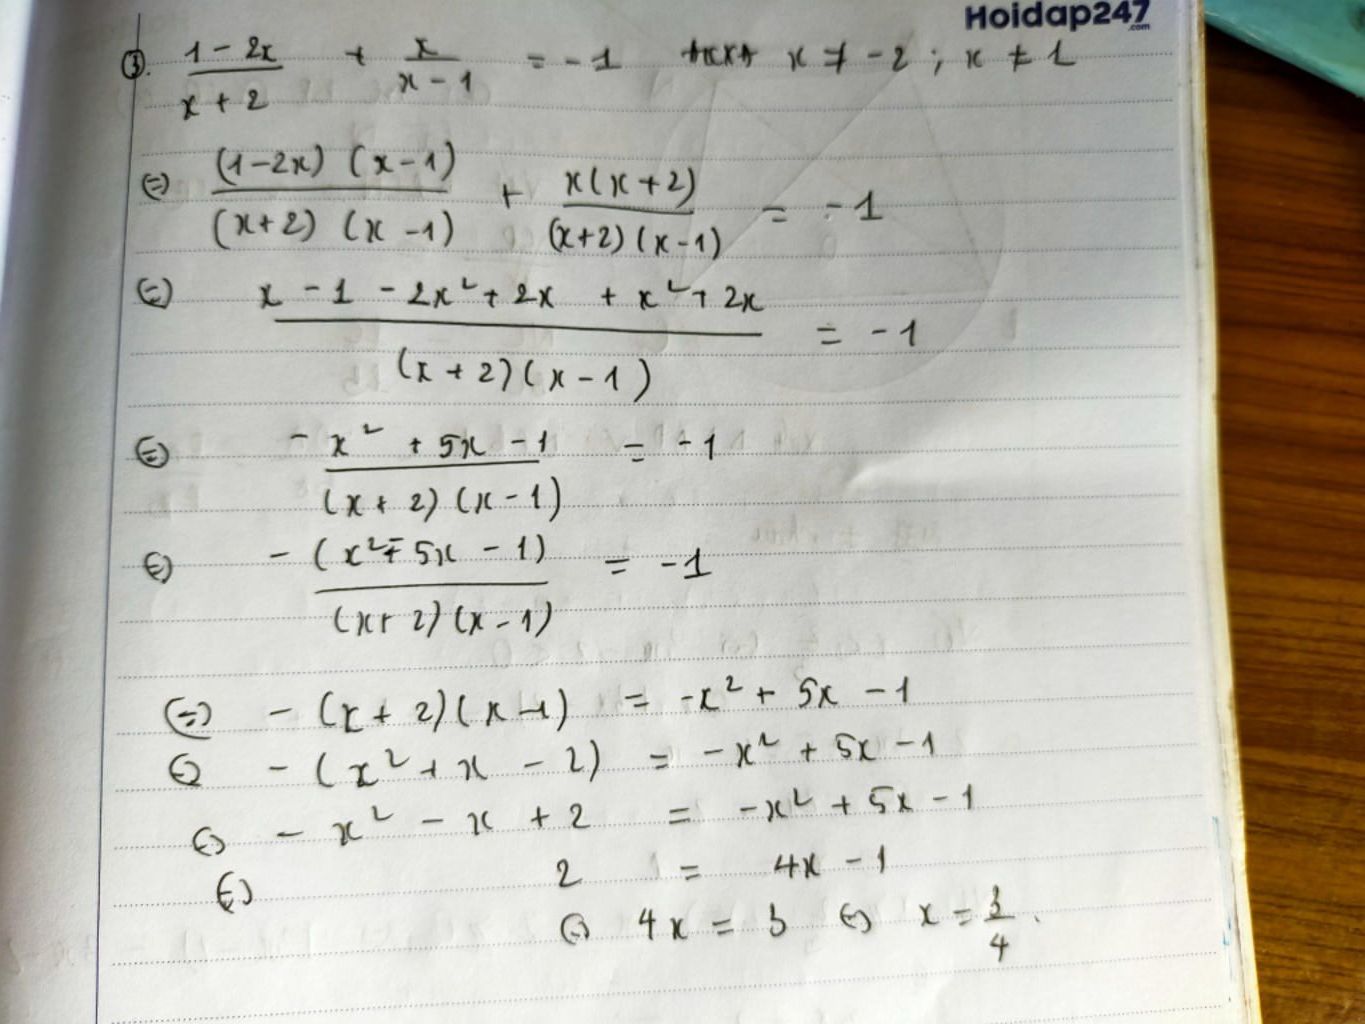 Hoidap247
.com
③. \frac{1 - 2x}{x + 2} + \frac{x}{x - 1} = -1 x ≠ -2 ; x ≠ 1
⇔ \frac{(1 - 2x) (x - 1)}{(x + 2) (x - 1)} + \frac{x(x + 2)}{(x + 2)(x - 1)} = -1
⇔ \frac{x - 1 - 2x² + 2x + x² + 2x}{(x + 2)(x - 1)} = -1
⇔ \frac{-x² + 5x - 1}{(x + 2) (x - 1)} = -1
⇔ \frac{-(x² ∓ 5x - 1)}{(x + 2)(x - 1)} = -1
⇔ -(x + 2)(x - 1) = -x² + 5x - 1
⇔ -(x² + x - 2) = -x² + 5x - 1
⇔ - x² - x + 2 = -x² + 5x - 1
⇔ 2 = 4x - 1
⇔ 4x = 3 ⇔ x = \frac{3}{4}.